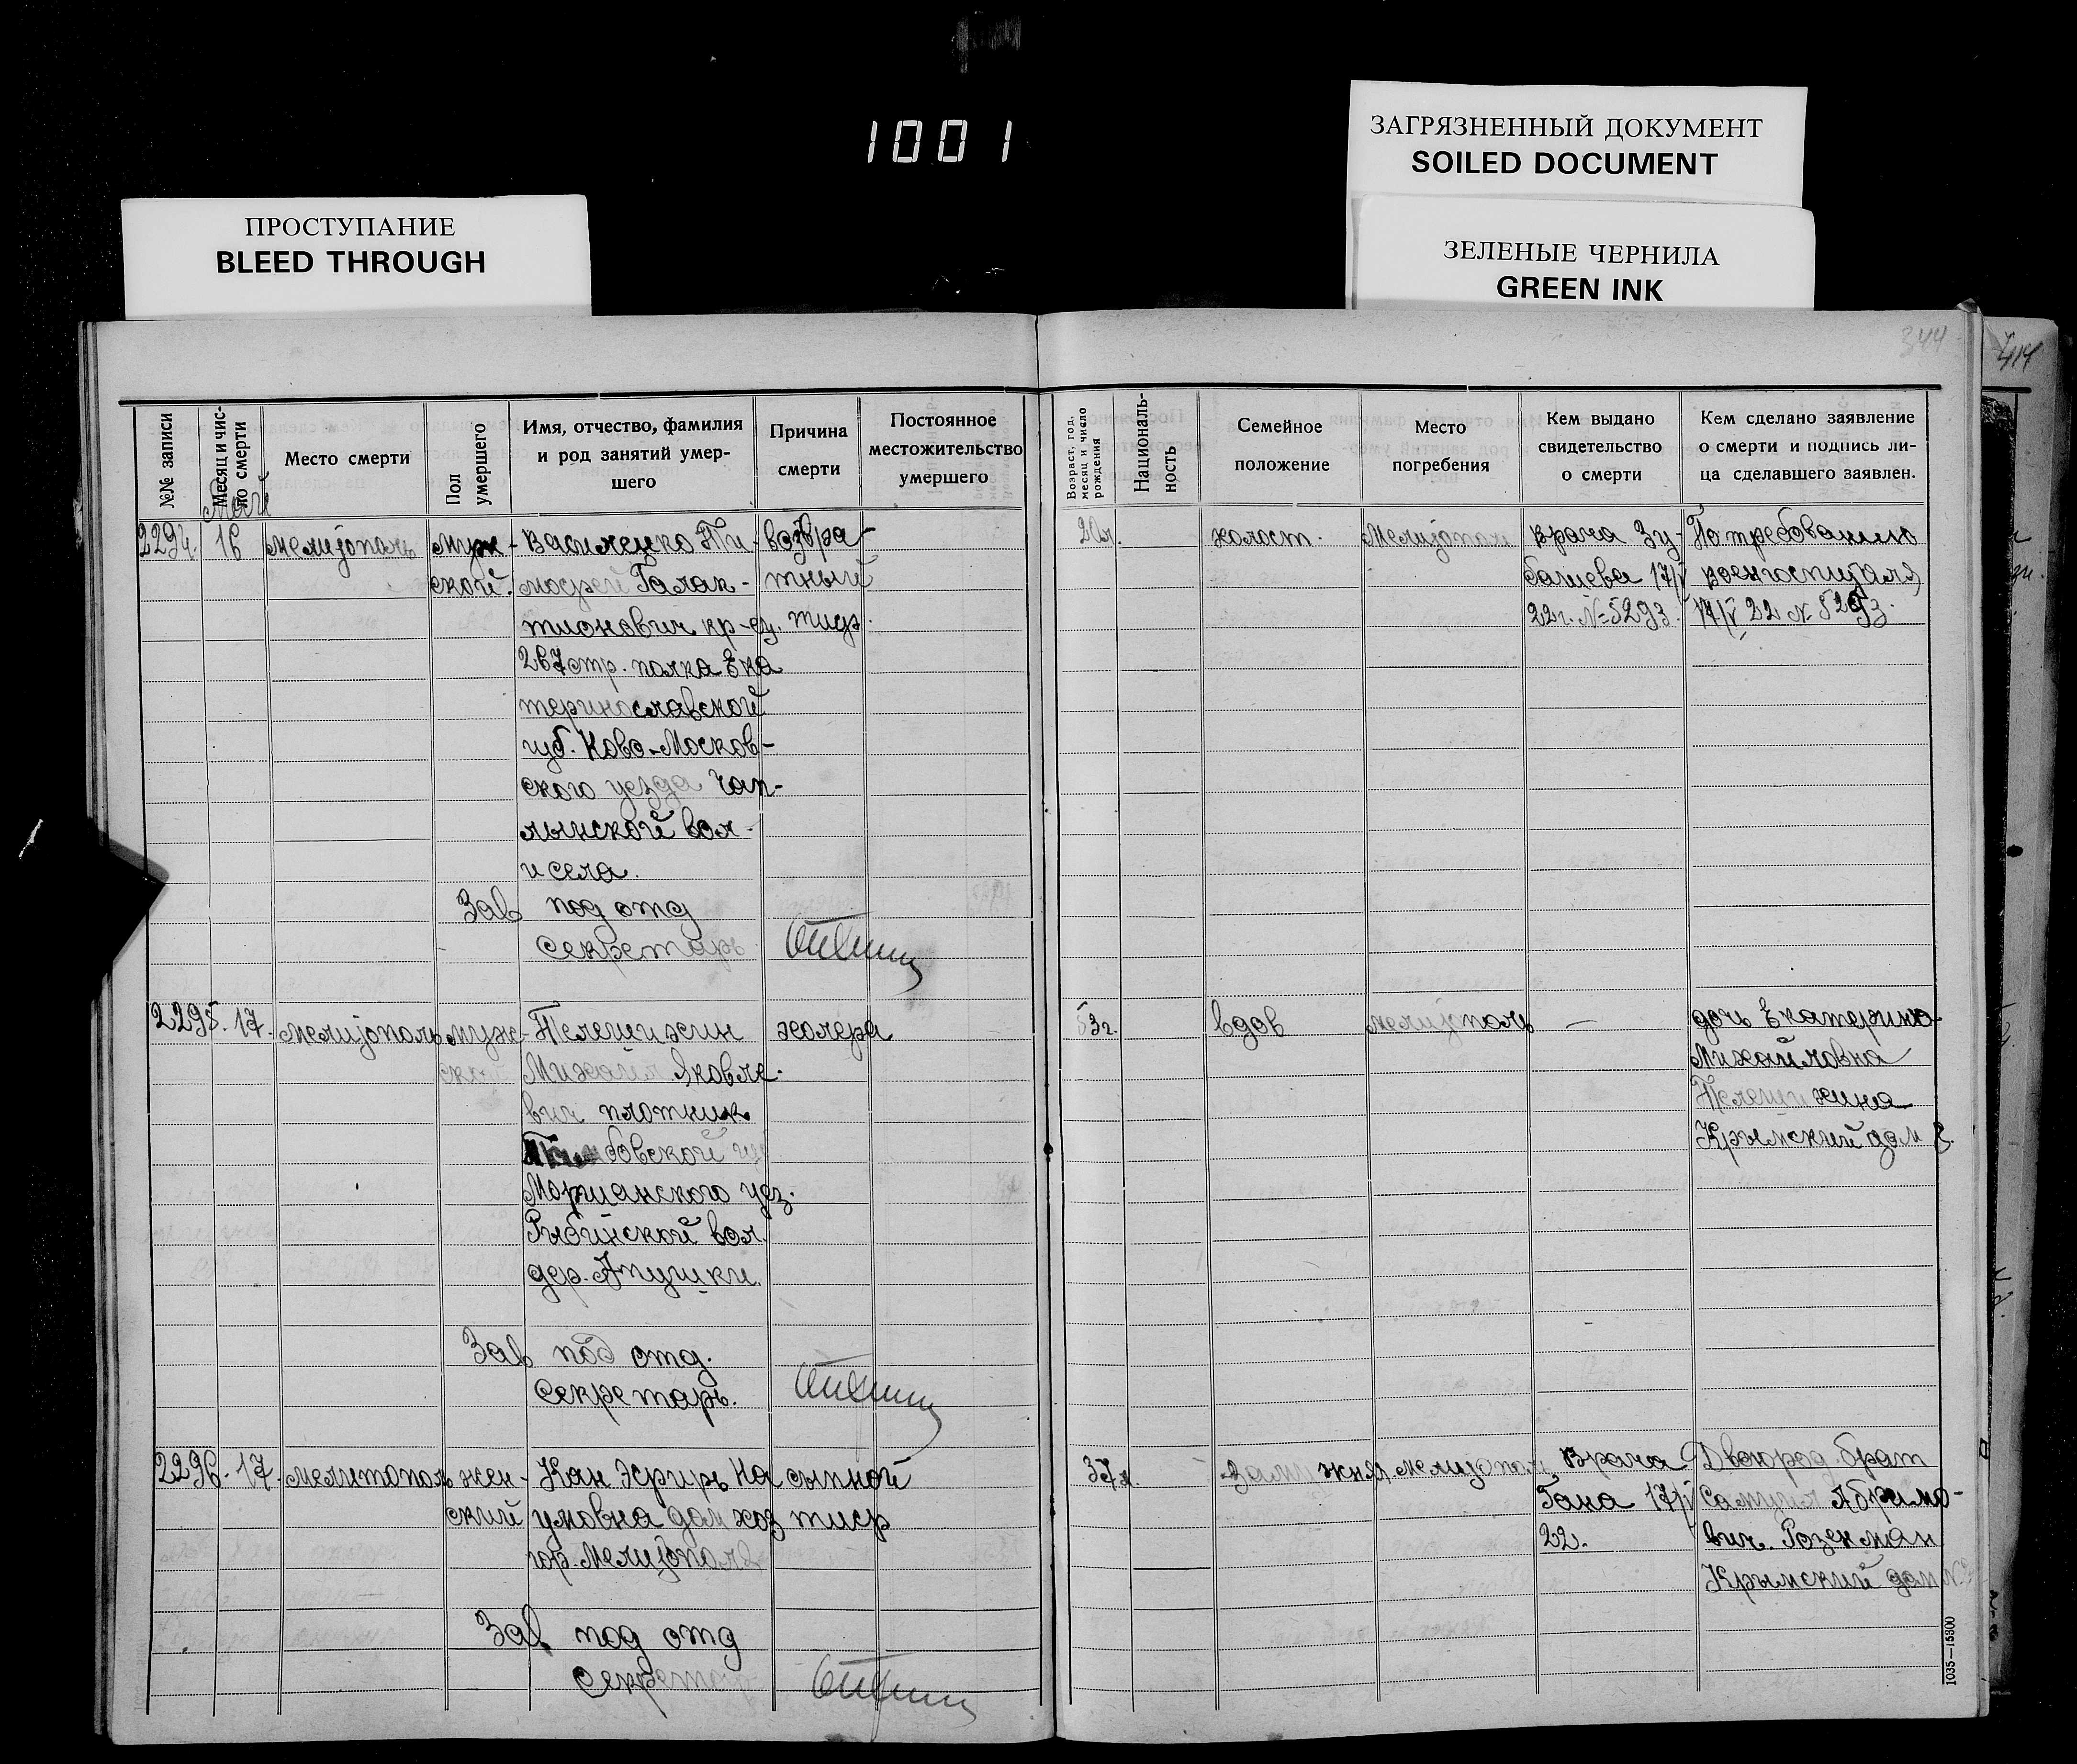 1001
ЗАГРЯЗНЕННЫЙ ДОКУМЕНТ
SOILED DOCUMENT
ПРОСТУПАНИЕ
BLEED THROUGH
ЗЕЛЕНЫЕ ЧЕРНИЛА
GREEN INK
344
414
№№ записи
Месяц и число смерти
Место смерти
Пол умершего
Имя, отчество, фамилия
и род занятий умер-
шего
Причина
смерти
Постоянное
местожительство
умершего
Возраст, год,
месяц и число
рождения
Националь-
ность
Семейное
положение
Место
погребения
Кем выдано
свидетельство
о смерти
Кем сделано заявление
о смерти и подпись ли-
ца сделавшего заявлен.
Май
2294. 16 Мелитополь муж-
ской.
Василенко Ти-
мофей Галак-
тионович кр-ец.
267 стр. полка Ека
теринославской
губ. Ново-Москов-
ского уезда Чап-
лынской вол-
и села.
возвра-
тный
тиф.
20л.
холост.
Мелитополь
врача Зу-
башева 17/V
22г. №5293.
По требованию
военгоспиталя
17/V 22 № 5293.
Зав под отд
Секретарь
2295. 17. Мелитополь муж-
ской
Телешихин
Михаил Яковле-
вич плотник
бовской
Моршанского уез.
Рыбинской вол.
дер. Апушки.
холера
53г.
вдов
Мелитополь
—
дочь Екатерина
Михайловна
Телешихина
Крымский дом
Зав под отд.
Секретарь.
2296. 17. Мелитополь жен-
ский
Кан Эсфирь На
умовна дом хоз
гор. Мелитополя
сыпной
тиф
37л.
замужняя
Мелитополь
врача
Гана 17/V
22.
Двоюрод. брат
Самуил Абрамо-
вич Розенман
Крымский дом №
Зав под отд
Секретарь
1035—15800